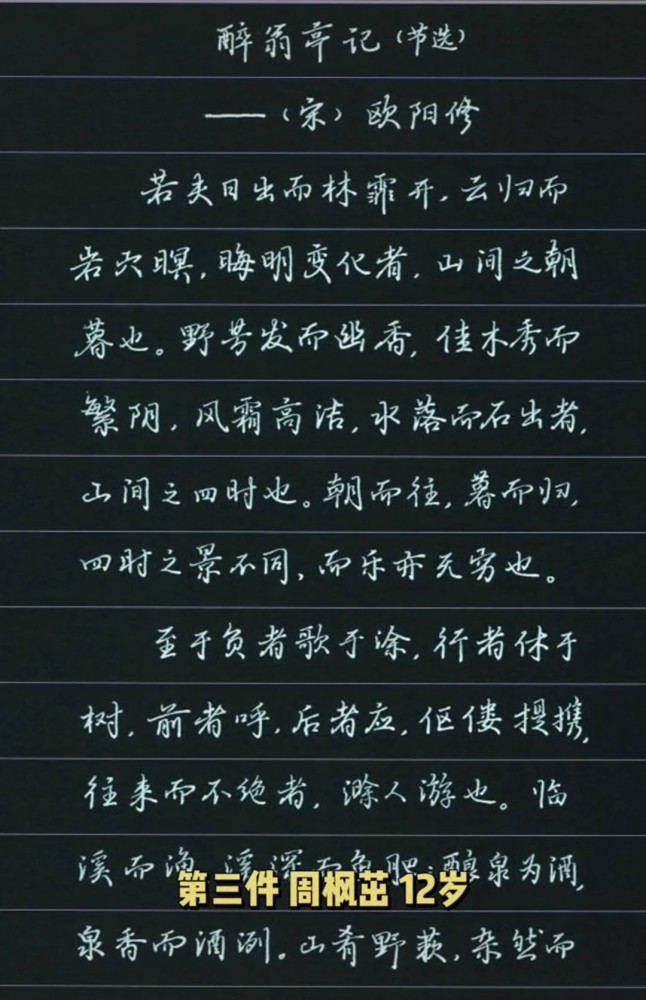 醉翁亭记(节选)
——(宋)欧阳修
若夫日出而林霏开,云归而
岩穴暝,晦明变化者,山间之朝
暮也。野芳发而幽香,佳木秀而
繁阴,风霜高洁,水落而石出者,
山间之四时也。朝而往,暮而归,
四时之景不同,而乐亦无穷也。
至于负者歌于涂,行者休于
树,前者呼,后者应,伛偻提携,
往来而不绝者,滁人游也。临
溪而渔,溪深而鱼肥;酿泉为酒,
第三件 周枫茁 12岁
泉香而酒洌。山肴野蔌,杂然而